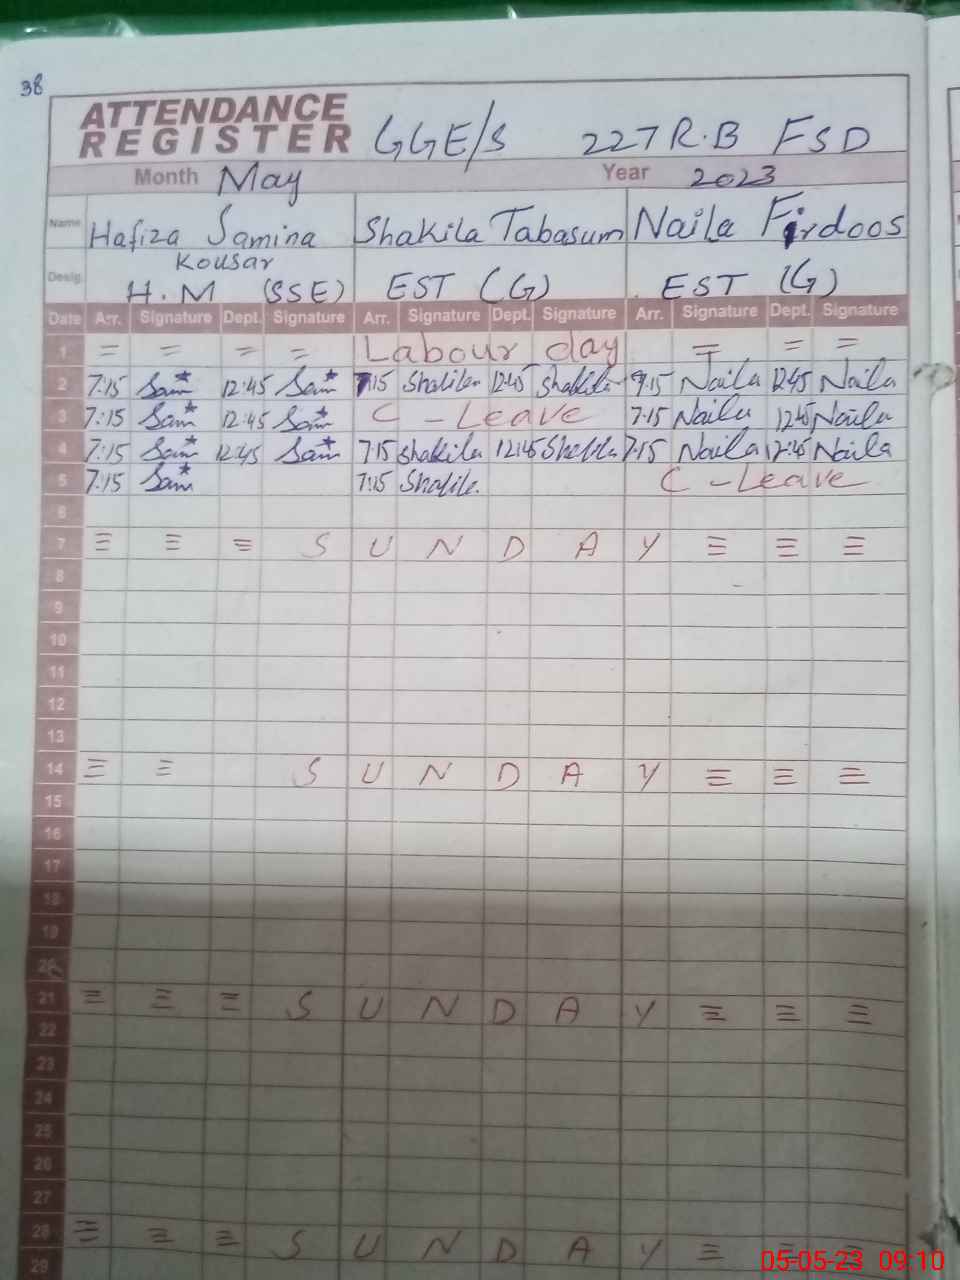 38
ATTENDANCE
REGISTER GGE/S 227 R.B FSD
Month May Year 2023
Name Hafiza Samina Kousar Shakila Tabasum Naila Firdoos
Desig. H.M (SSE) EST (G) EST (G)
Date Arr. Signature Dept. Signature Arr. Signature Dept. Signature Arr. Signature Dept. Signature
1 = = = = Labour day = = =
2 7:15 Sam 12:45 Sam 7:15 Shakila 12:45 Shakila 7:15 Naila 12:45 Naila
3 7:15 Sam 12:45 Sam C - Leave 7:15 Naila 12:45 Naila
4 7:15 Sam 12:45 Sam 7:15 Shakila 12:45 Shakila 7:15 Naila 12:45 Naila
5 7:15 Sam 7:15 Shakila C - Leave
6
7 ≡ ≡ ≡ S U N D A Y ≡ ≡ ≡
8
9
10
11
12
13
14 ≡ ≡ S U N D A Y ≡ ≡ ≡
15
16
17
18
19
20
21 ≡ ≡ ≡ S U N D A Y ≡ ≡ ≡
22
23
24
25
26
27
28 ≡ ≡ ≡ S U N D A Y ≡ ≡ ≡
29
05-05-23 09:10